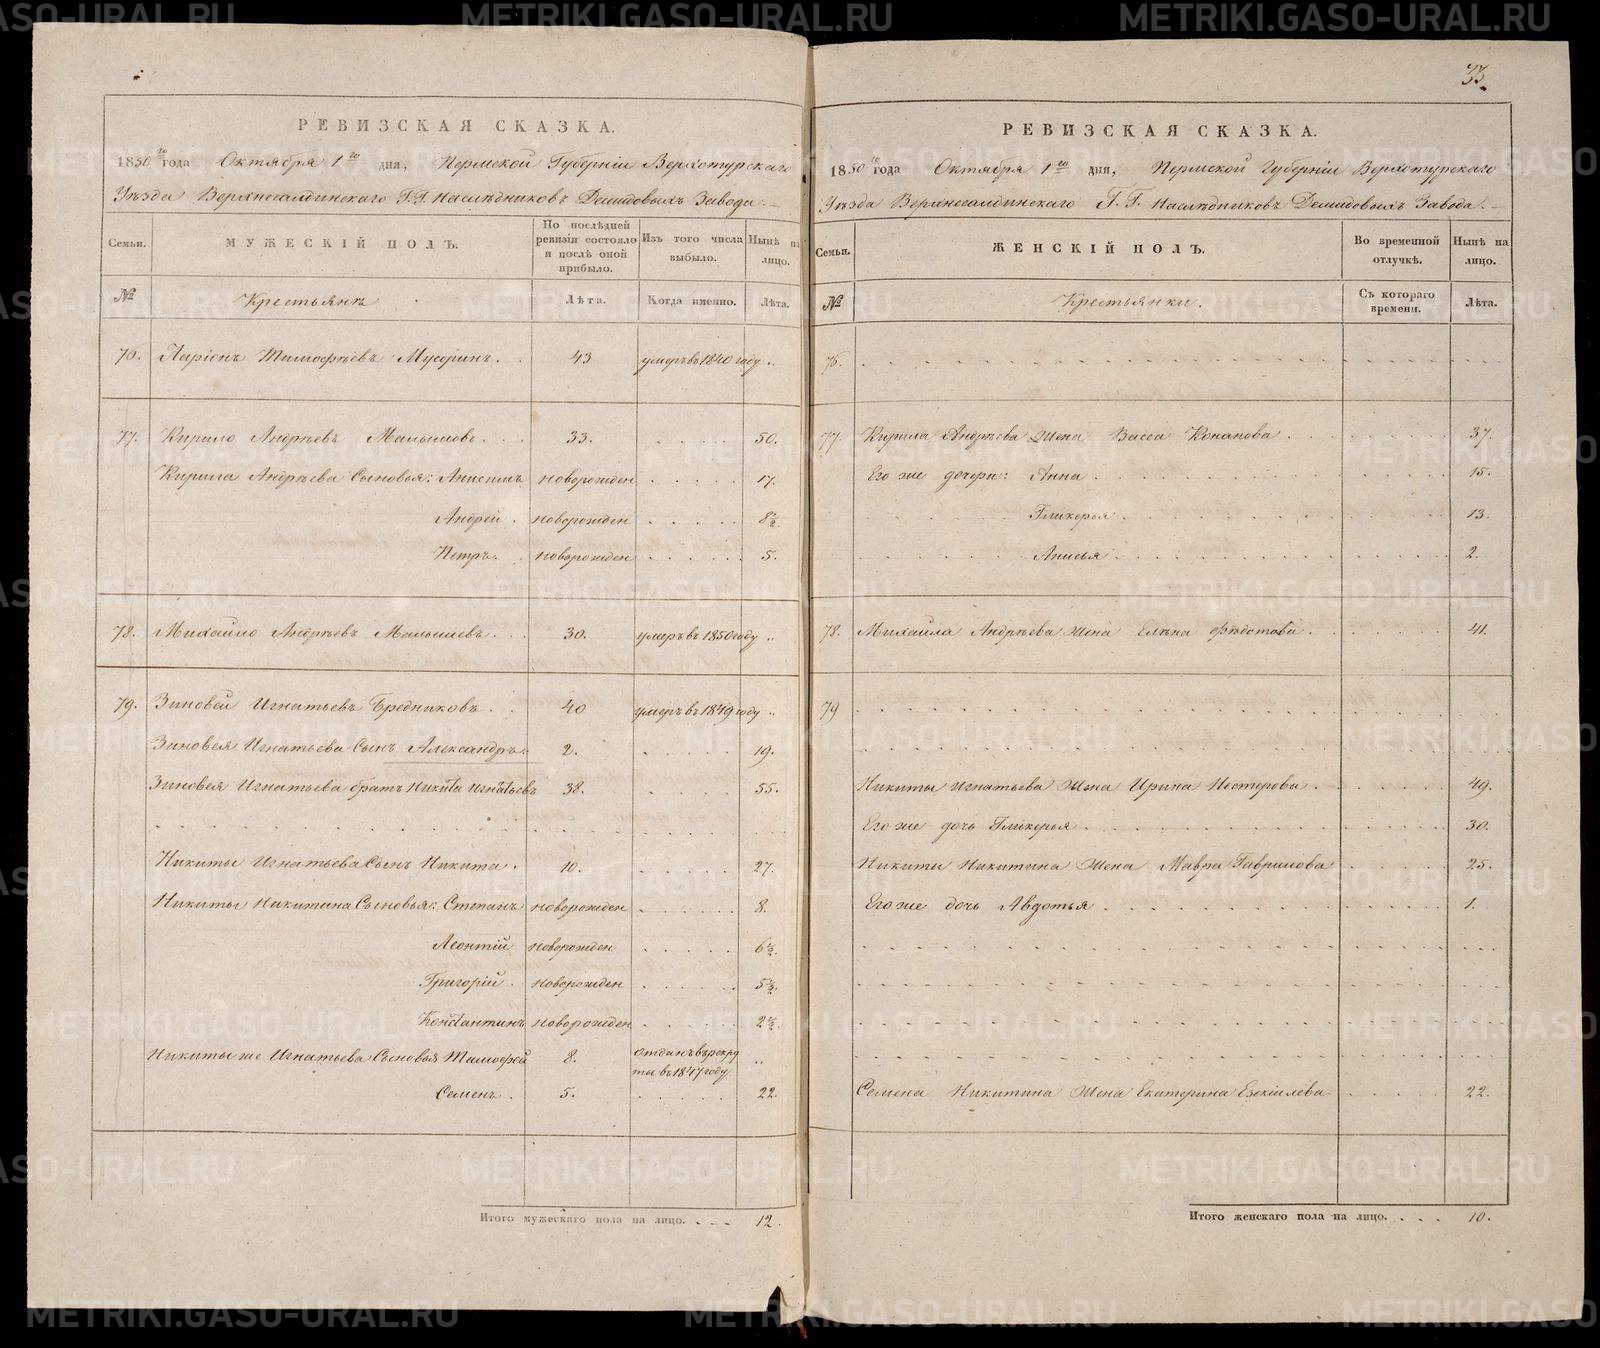 33.
РЕВИЗСКАЯ СКАЗКА.
1850го года Октября 1го дня, Пермской Губерніи Верхотурскаго
Уѣзда Верхнесалдинскаго Г.Г. Наслѣдниковъ Демидовыхъ Завода.
Семьи. МУЖЕСКІЙ ПОЛЪ. По послѣдней ревизіи состояло и послѣ оной прибыло. Изъ того числа выбыло. Нынѣ на лицо.
№ Крестьянъ Лѣта. Когда именно. Лѣта.
76. Ларіонъ Тимофѣевъ 43 умеръ въ 1840 году
77. Кирило Андрѣевъ Малышовъ. 33. 50.
Кирила Андрѣева Сыновья: Анисимъ новорожден 17.
Андрей. новорожден 8½
Петръ. новорожден 5.
78. Михайло Андрѣевъ Малышевъ. 30. умеръ въ 1850 году
79. Зиновей Игнатьевъ Бредниковъ. 40 умеръ въ 1849 году
Зиновея Игнатьева Сынъ Александръ. 2. 19.
Зиновея Игнатьева братъ Никита Игнатьевъ 38. 55.
Никиты Игнатьева Сынъ Никита. 10. 27.
Никиты Никитина Сыновья: Степанъ новорожден 8.
Леонтій новорожден 6½.
Григорій. новорожден 5½.
Константинъ новорожден 2½.
Никиты же Игнатьева Сыновья Тимофей 8. отданъ въ рекру
ты въ 1847 году
Семенъ. 5. 22.
Итого мужескаго пола на лицо. 12.
РЕВИЗСКАЯ СКАЗКА.
1850го года Октября 1го дня, Пермской Губерніи Верхотурскаго
Уѣзда Верхнесалдинскаго Г.Г. Наслѣдниковъ Демидовыхъ Завода.
Семьи. ЖЕНСКІЙ ПОЛЪ. Во временной отлучкѣ. Нынѣ на лицо.
№ Крестьянки. Съ котораго времени. Лѣта.
76.
77. Кирила Андрѣева Жена Васса Конанова 37.
Его же дочери: Анна 15.
Гликерья 13.
Анисья 2.
78. Михайла Андрѣева Жена Елѣна Фѣдотова. 41.
79
Никиты Игнатьева Жена Ирина Нестерова 49.
Его же дочь Гликерья 30.
Никиты Никитина Жена Мавра Гаврилова 25.
Его же дочь Авдотья 1.
Семена Никитина Жена Екатерина Езекіилева 22.
Итого женскаго пола на лицо. 10.
METRIKI.GASO-URAL.RU